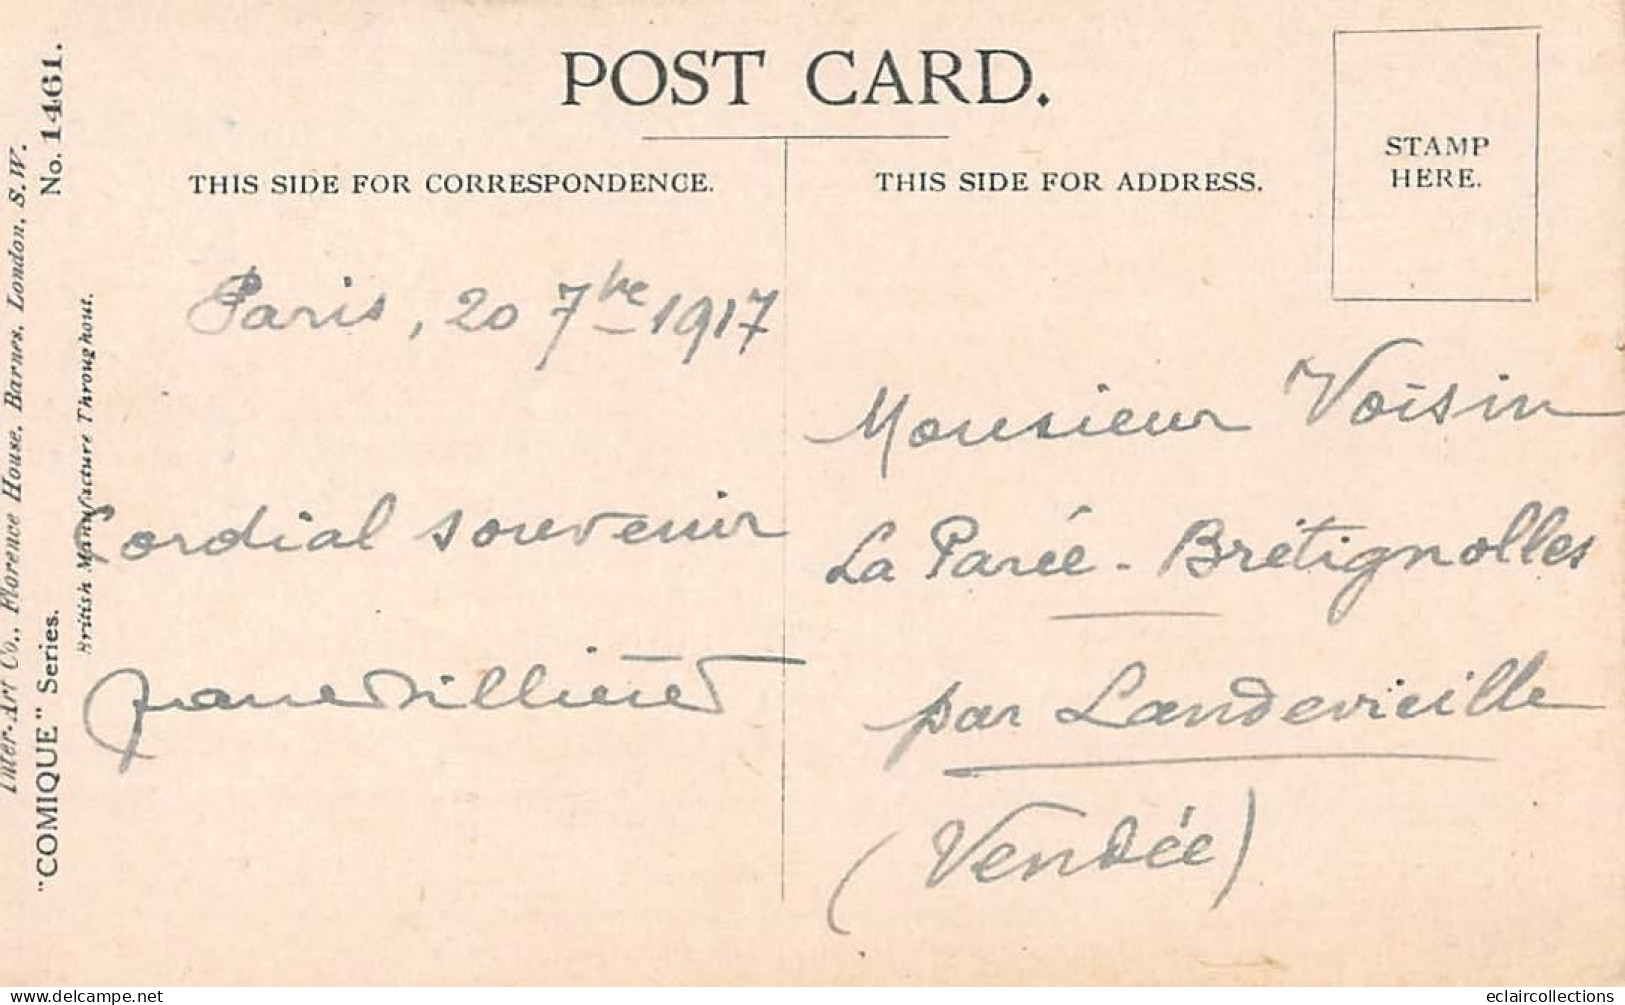 POST CARD.
THIS SIDE FOR CORRESPONDENCE.
THIS SIDE FOR ADDRESS.
STAMP
HERE.
Paris, 20 7bre 1917
Cordial souvenir
Monsieur Voisin
La Parée - Brétignolles
par Landevieille
(Vendée)
Inter-Art Co., Florence House, Barnes, London, S.W.
"COMIQUE" Series. No. 1461.
British Manufacture Throughout.
eclaircollections